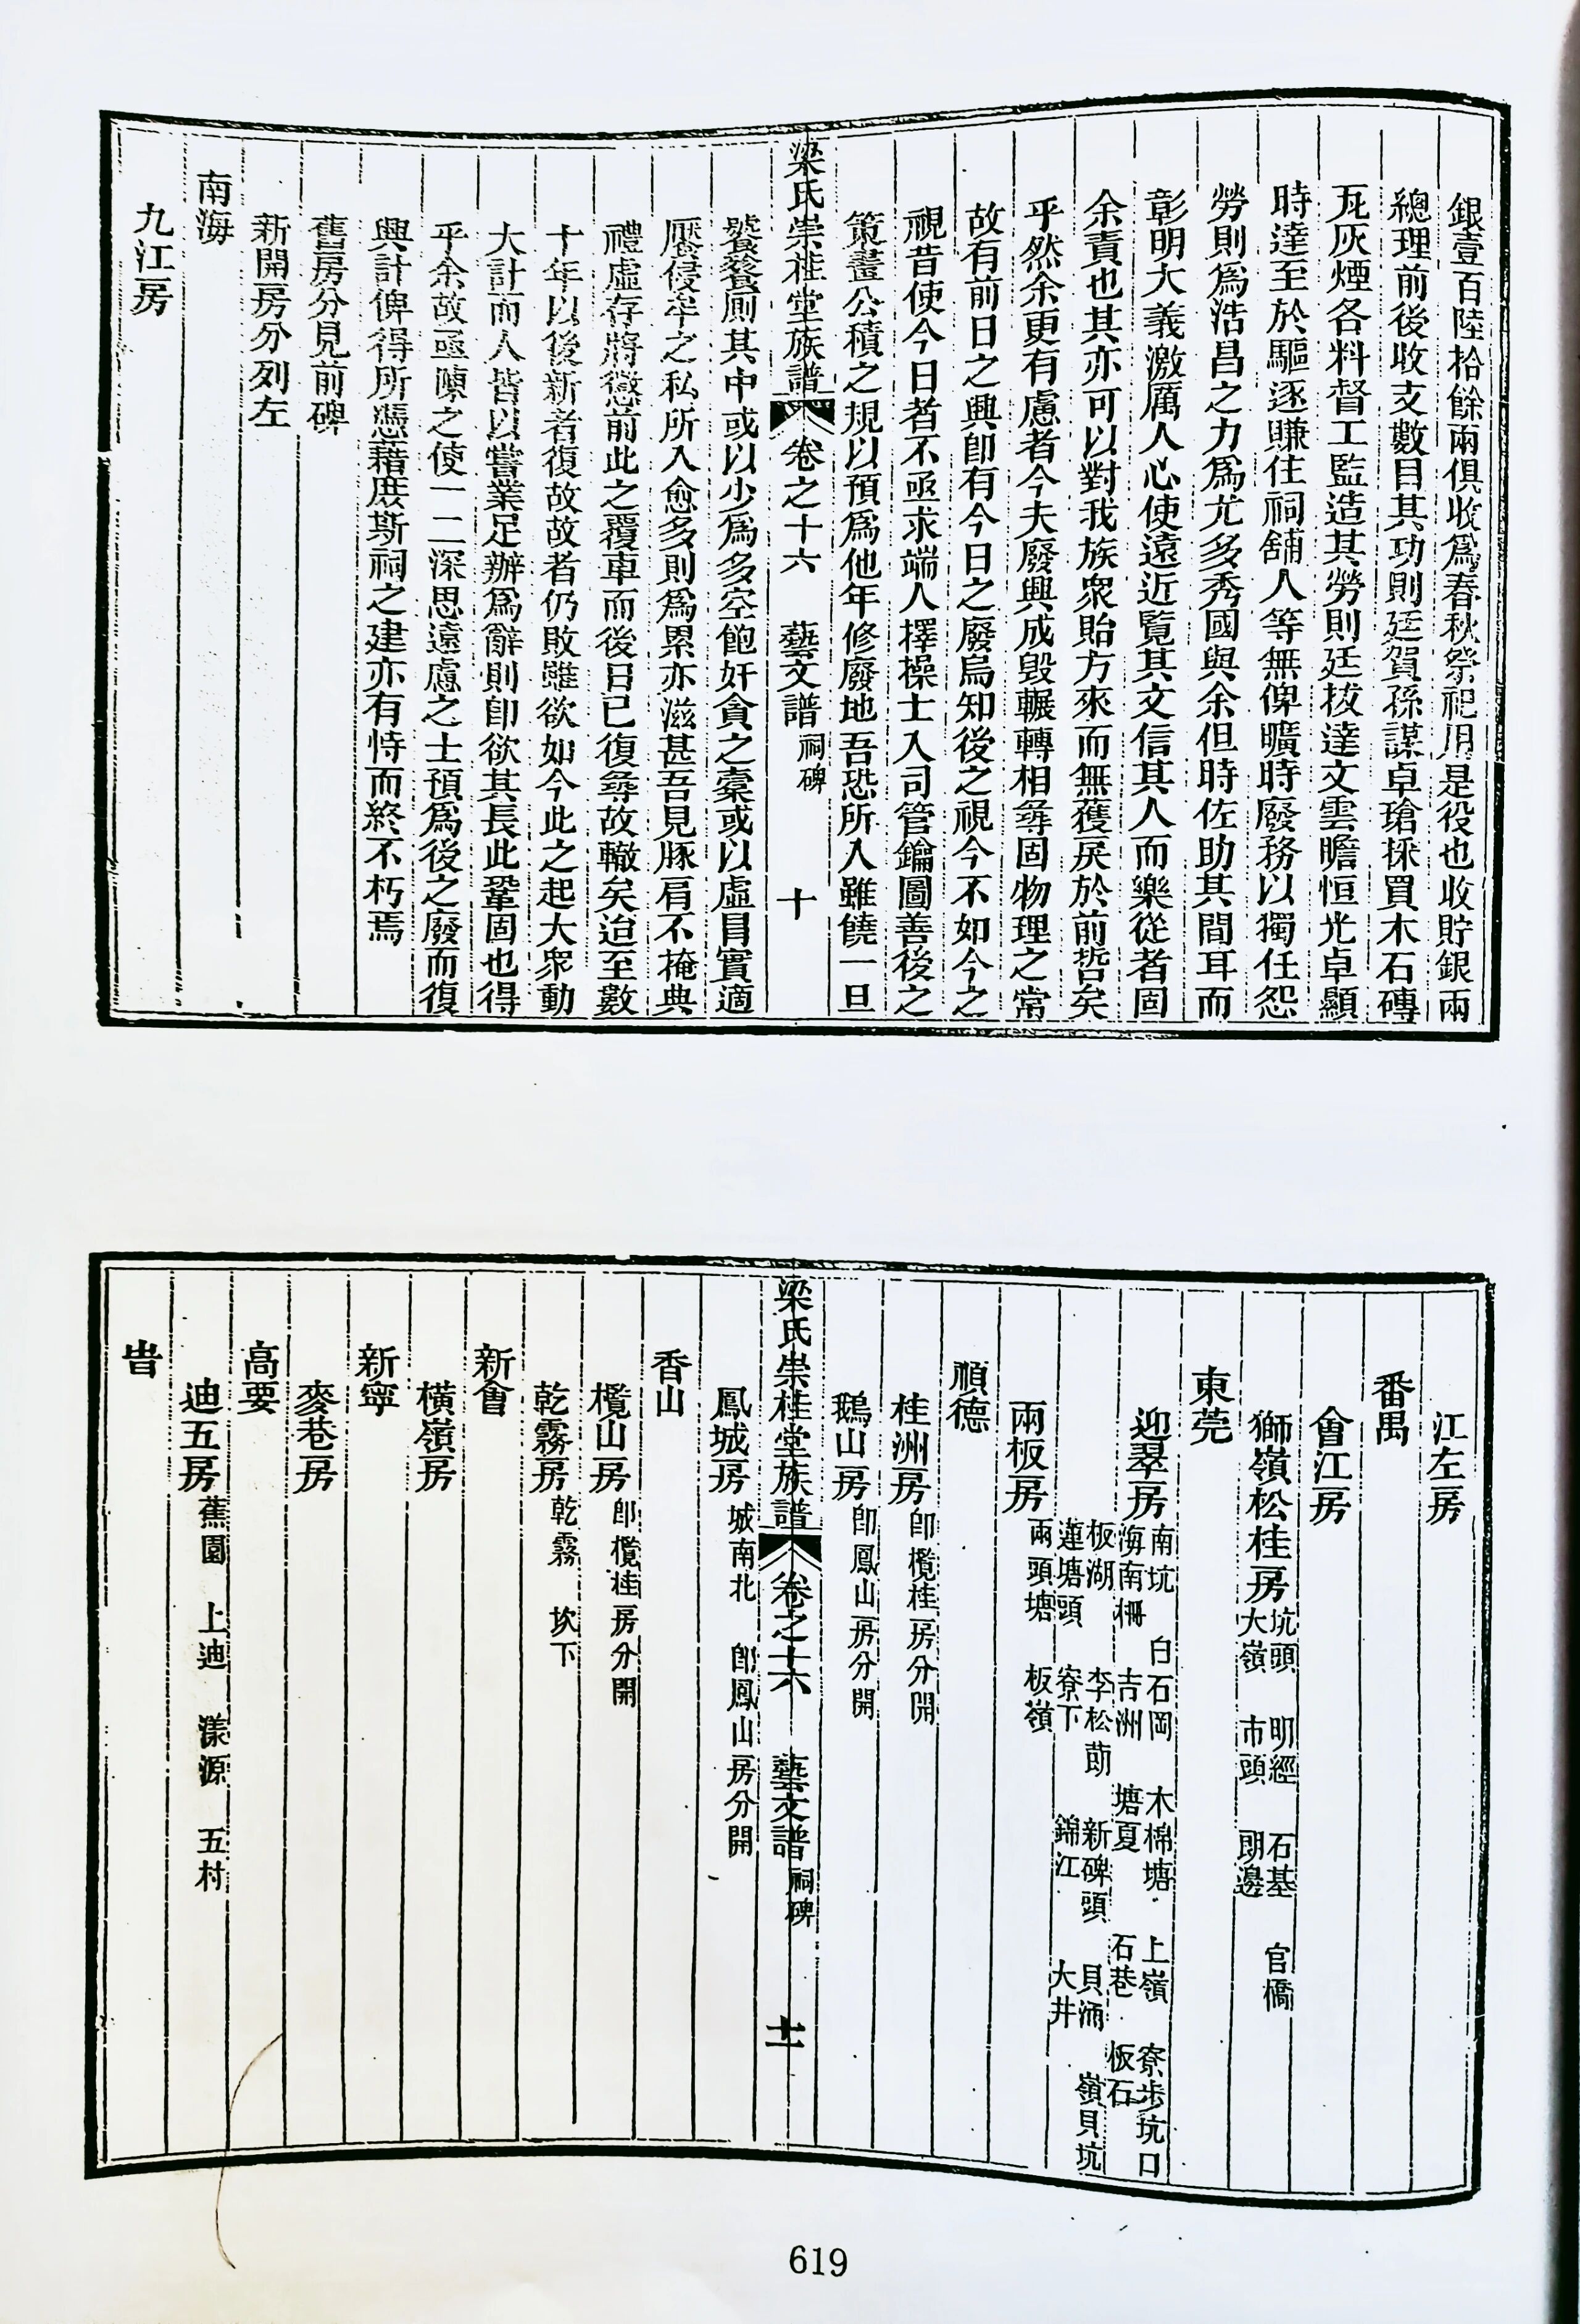 銀壹百陸拾餘兩俱收爲春秋祭祀用是役也收貯銀兩
總理前後收支數目其功則廷賀孫謀卓瑲採買木石磚
瓦灰煙各料督工監造其勞則廷拔達文雲瞻恒光卓顯
時達至於驅逐賺住祠舖人等無俾曠時廢務以獨任怨
勞則爲浩昌之力爲尤多秀國與余但時佐助其間耳而
彰明大義激厲人心使遠近覽其文信其人而樂從者固
余責也其亦可以對我族衆貽方來而無蒦戾於前哲矣
乎然余更有慮者今夫廢興成毀輾轉相尋固物理之常
故有前日之興即有今日之廢烏知後之視今不如今之
視昔使今日者不亟求端人擇操士入司管鑰圖善後之
策畫公積之規以預爲他年修廢地吾恐所入雖饒一旦
梁氏崇桂堂族譜 卷之十六 藝文譜 祠碑 十
饕餮厠其中或以少爲多空飽奸貪之橐或以虛目實適
饜侵牟之私所入愈多則爲累亦滋甚吾見豚肩不掩典
禮虛存將懲前此之覆車而後日已復尋故轍矣迨至數
十年以後新者復故故者仍敗雖欲如今此之起大衆動
大計而人皆以嘗業足辦爲辭則即欲其長此鞏固也得
乎余故亟陳之使一二深思遠慮之士預爲後之廢而復
興計俾得所憑藉庶斯祠之建亦有恃而終不朽焉
舊房分見前碑
新開房分列左
南海
九江房
江左房
番禺
會江房
獅嶺松桂房 坑頭 明經 石基 官橋
大嶺 市頭 朗邊
東莞
迎翠房 南坑 白石岡 木棉塘 上嶺 寮步坑口
海南柵 吉洲 塘夏 石巷 板石
板湖 李松蓢 新碑頭 貝涌 嶺貝坑
蓮塘頭 寮下 錦江 大井
兩板房 兩頭塘 板嶺
順德
桂洲房 即欖桂房分開
鵝山房 即鳳山房分開
梁氏崇桂堂族譜 卷之十六 藝文譜 祠碑 十一
鳳城房 城南北 即鳳山房分開
香山
欖山房 即欖桂房分開
乾霧房 乾霧 坎下
新會
橫嶺房
新寧
麥巷房
高要
迪五房 蕉園 上迪 漾源 五村
旹
619